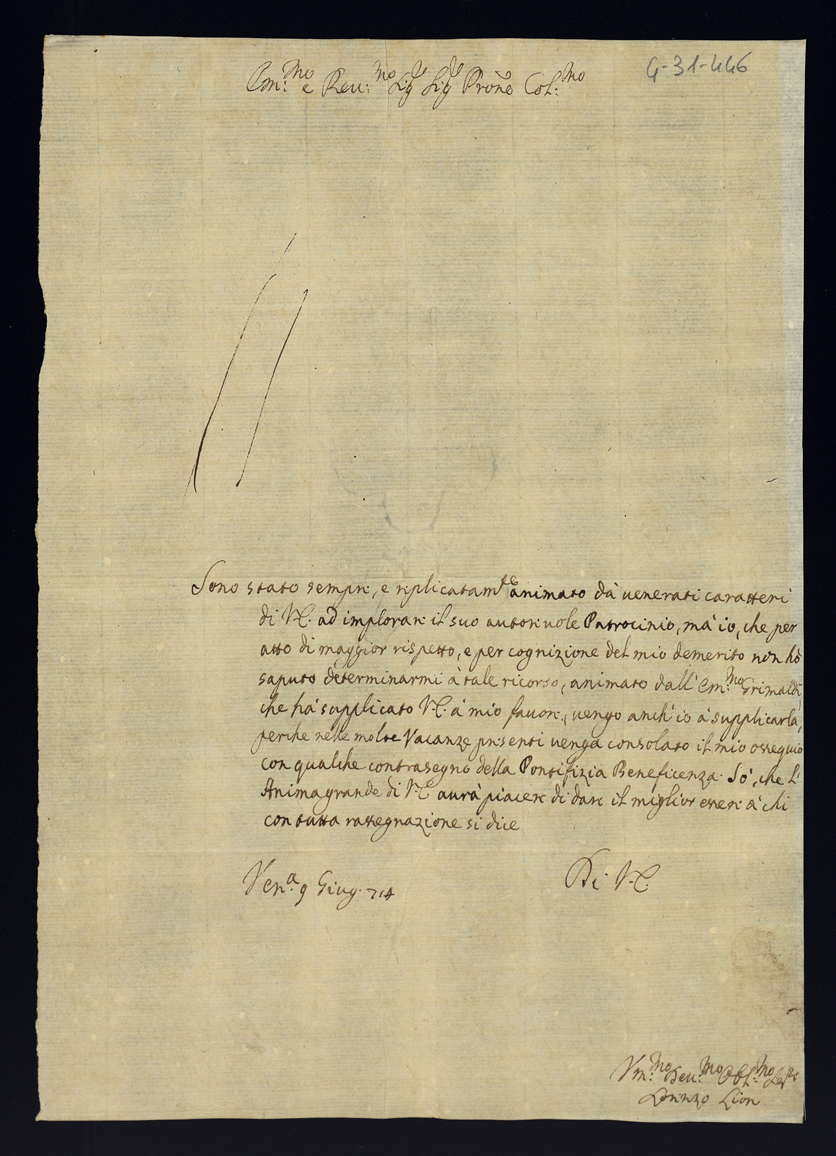 Em:mo e Reu:mo Sig.r Sig.r Prōne Col:mo
G-31-446
Sono stato sempre, e replicatam.te animato da' uenerati caratteri
di V.E. ad implorare il suo autoreuole Patrocinio, ma' io, che per
atto di maggior rispetto, e per cognizione del mio demerito non hò
saputo determinarmi à tale ricorso, animato dall' Em:mo Grimaldi,
che hà supplicato V.E. à mio fauore, uengo anch' io à supplicarla,
perche nelle molte Vacanze presenti uenga consolato il mio ossequio
con qualche contrasegno della Pontifizia Beneficenza. Sò, che l'
Anima grande di V.E. aurà piacere di dare il miglior essere à chi
con tutta rassegnazione si dice
Ven:a 9 Giug. 714
Di V.E.
Vm:mo Deu:mo Obl:mo Ser.re
Lorenzo Lion